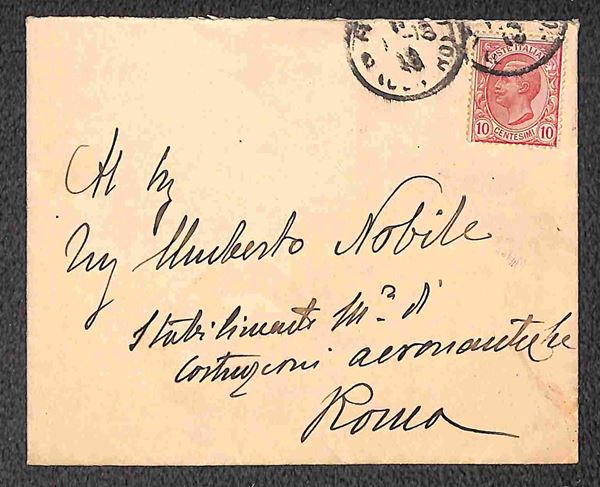 POSTE ITALIANE
10 CENTESIMI 10
Al Sig
Ing Umberto Nobile
Stabilimento M.re di
Costruzioni aeronautiche
Roma